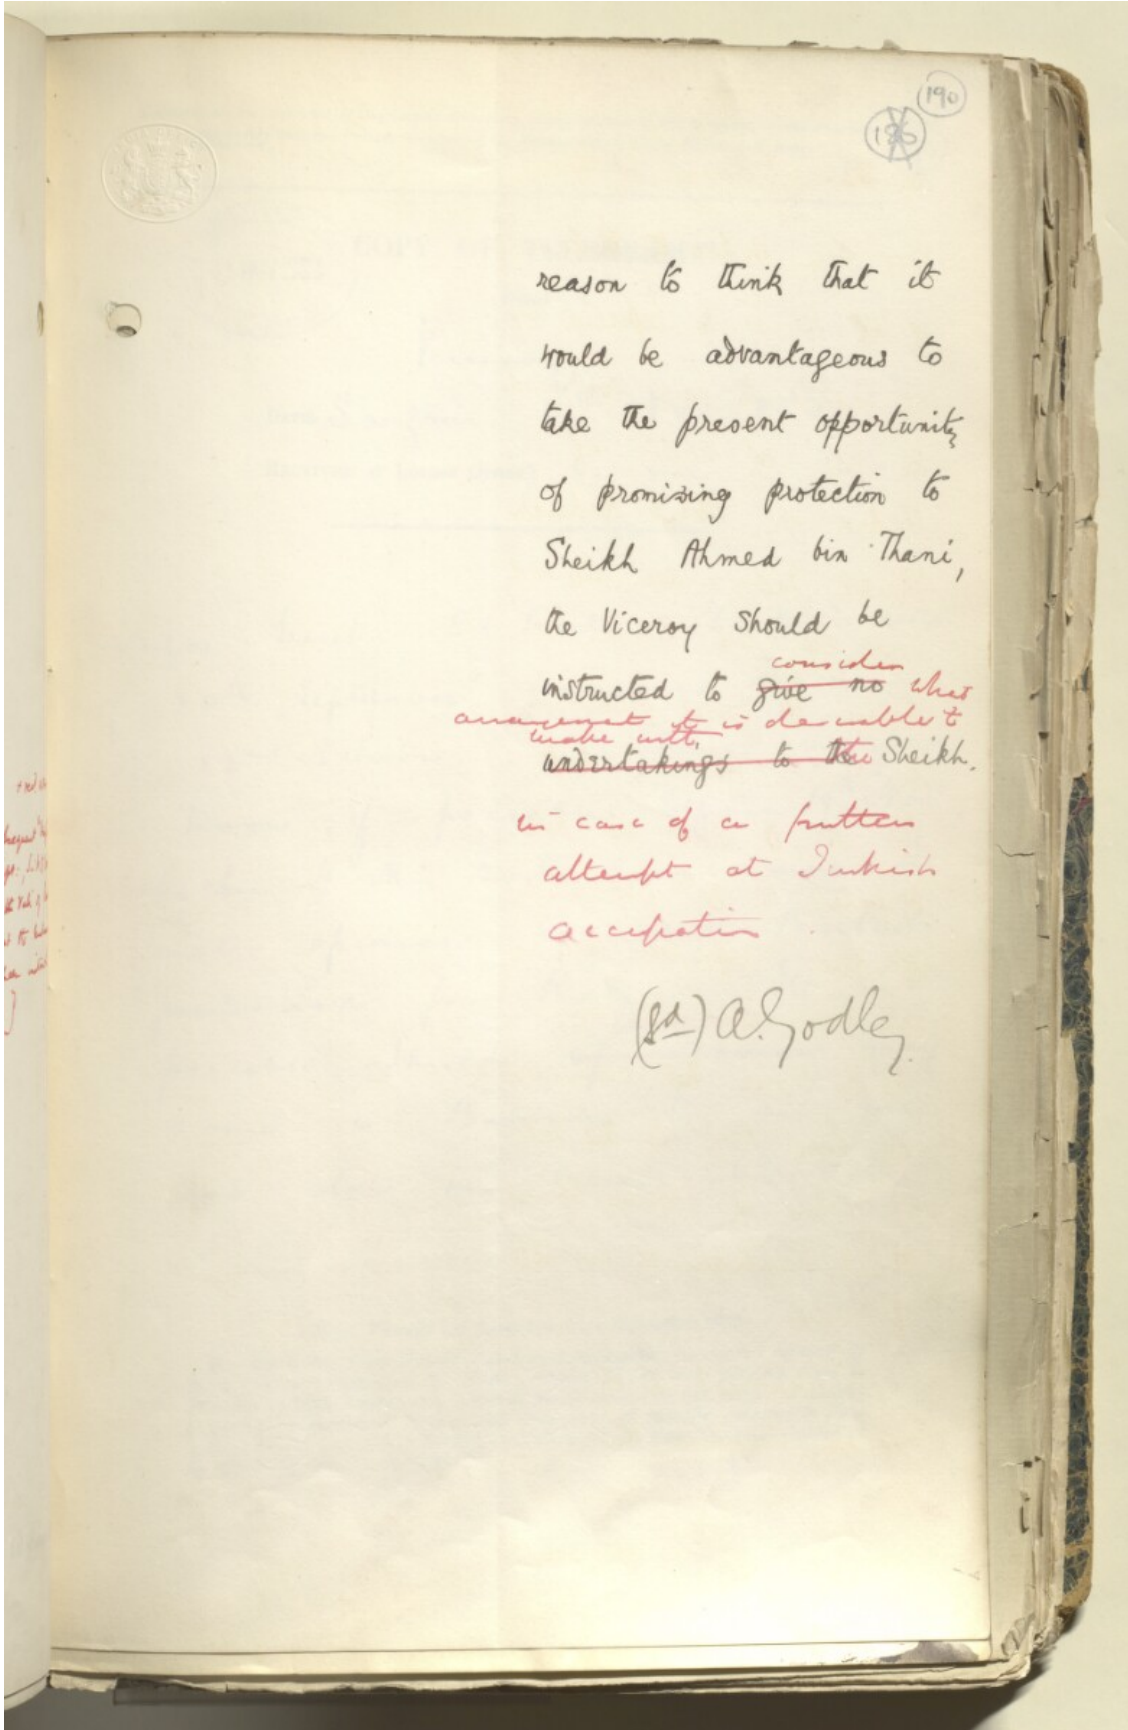 190
186
reason to think that it
would be advantageous to
take the present opportunity
of promising protection to
Sheikh Ahmed bin Thani,
the Viceroy should be
consider
instructed to give no what
arrangement it is desirable to
make with
undertakings to the the Sheikh.
in case of a further
attempt at Turkish
occupation
(sd) A. Godley.